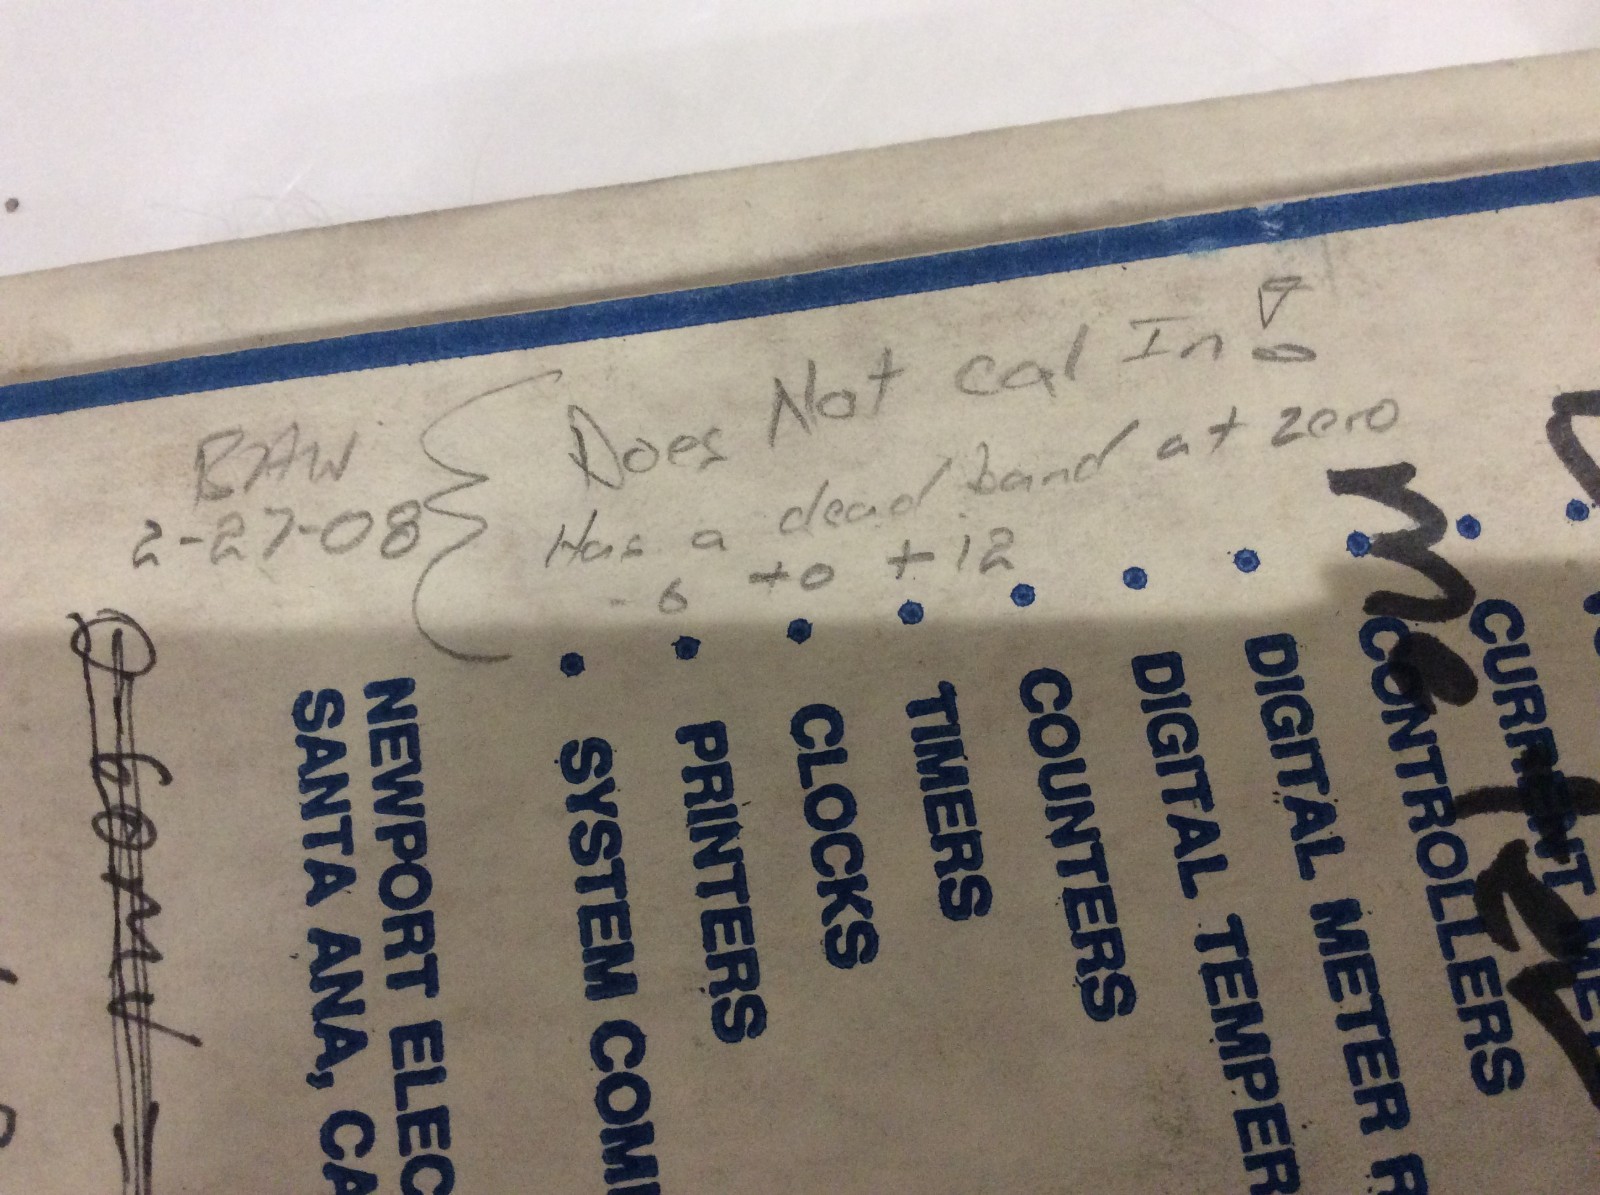 Does Not cal In !
Has a dead band at zero
- 6 to + .12
BAW
2-27-08
• CURRENT ME
• CONTROLLERS
• DIGITAL METER R
• DIGITAL TEMPER
• COUNTERS
• TIMERS
• CLOCKS
• PRINTERS
• SYSTEM COM
NEWPORT ELEC
SANTA ANA, CA